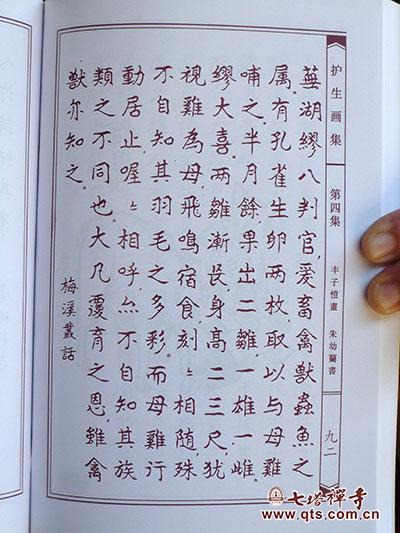 护生画集
第四集
丰子愷畫 朱幼蘭書
九二
蕪湖繆八判官,爱畜禽獸蟲魚之
属。有孔雀生卵两枚,取以与母雞
哺之。半月餘,果出二雛,一雄一雌。
繆大喜。两雛漸長,身高二三尺,犹
視雞為母,飛鳴宿食,刻〻相随,殊
不自知其羽毛之多彩。而母雞行
動居止,喔〻相呼,亦不自知其族
類之不同也。大凡覆育之恩,雖禽
獸亦知之。
梅溪叢話
七塔禪寺
www.qts.com.cn